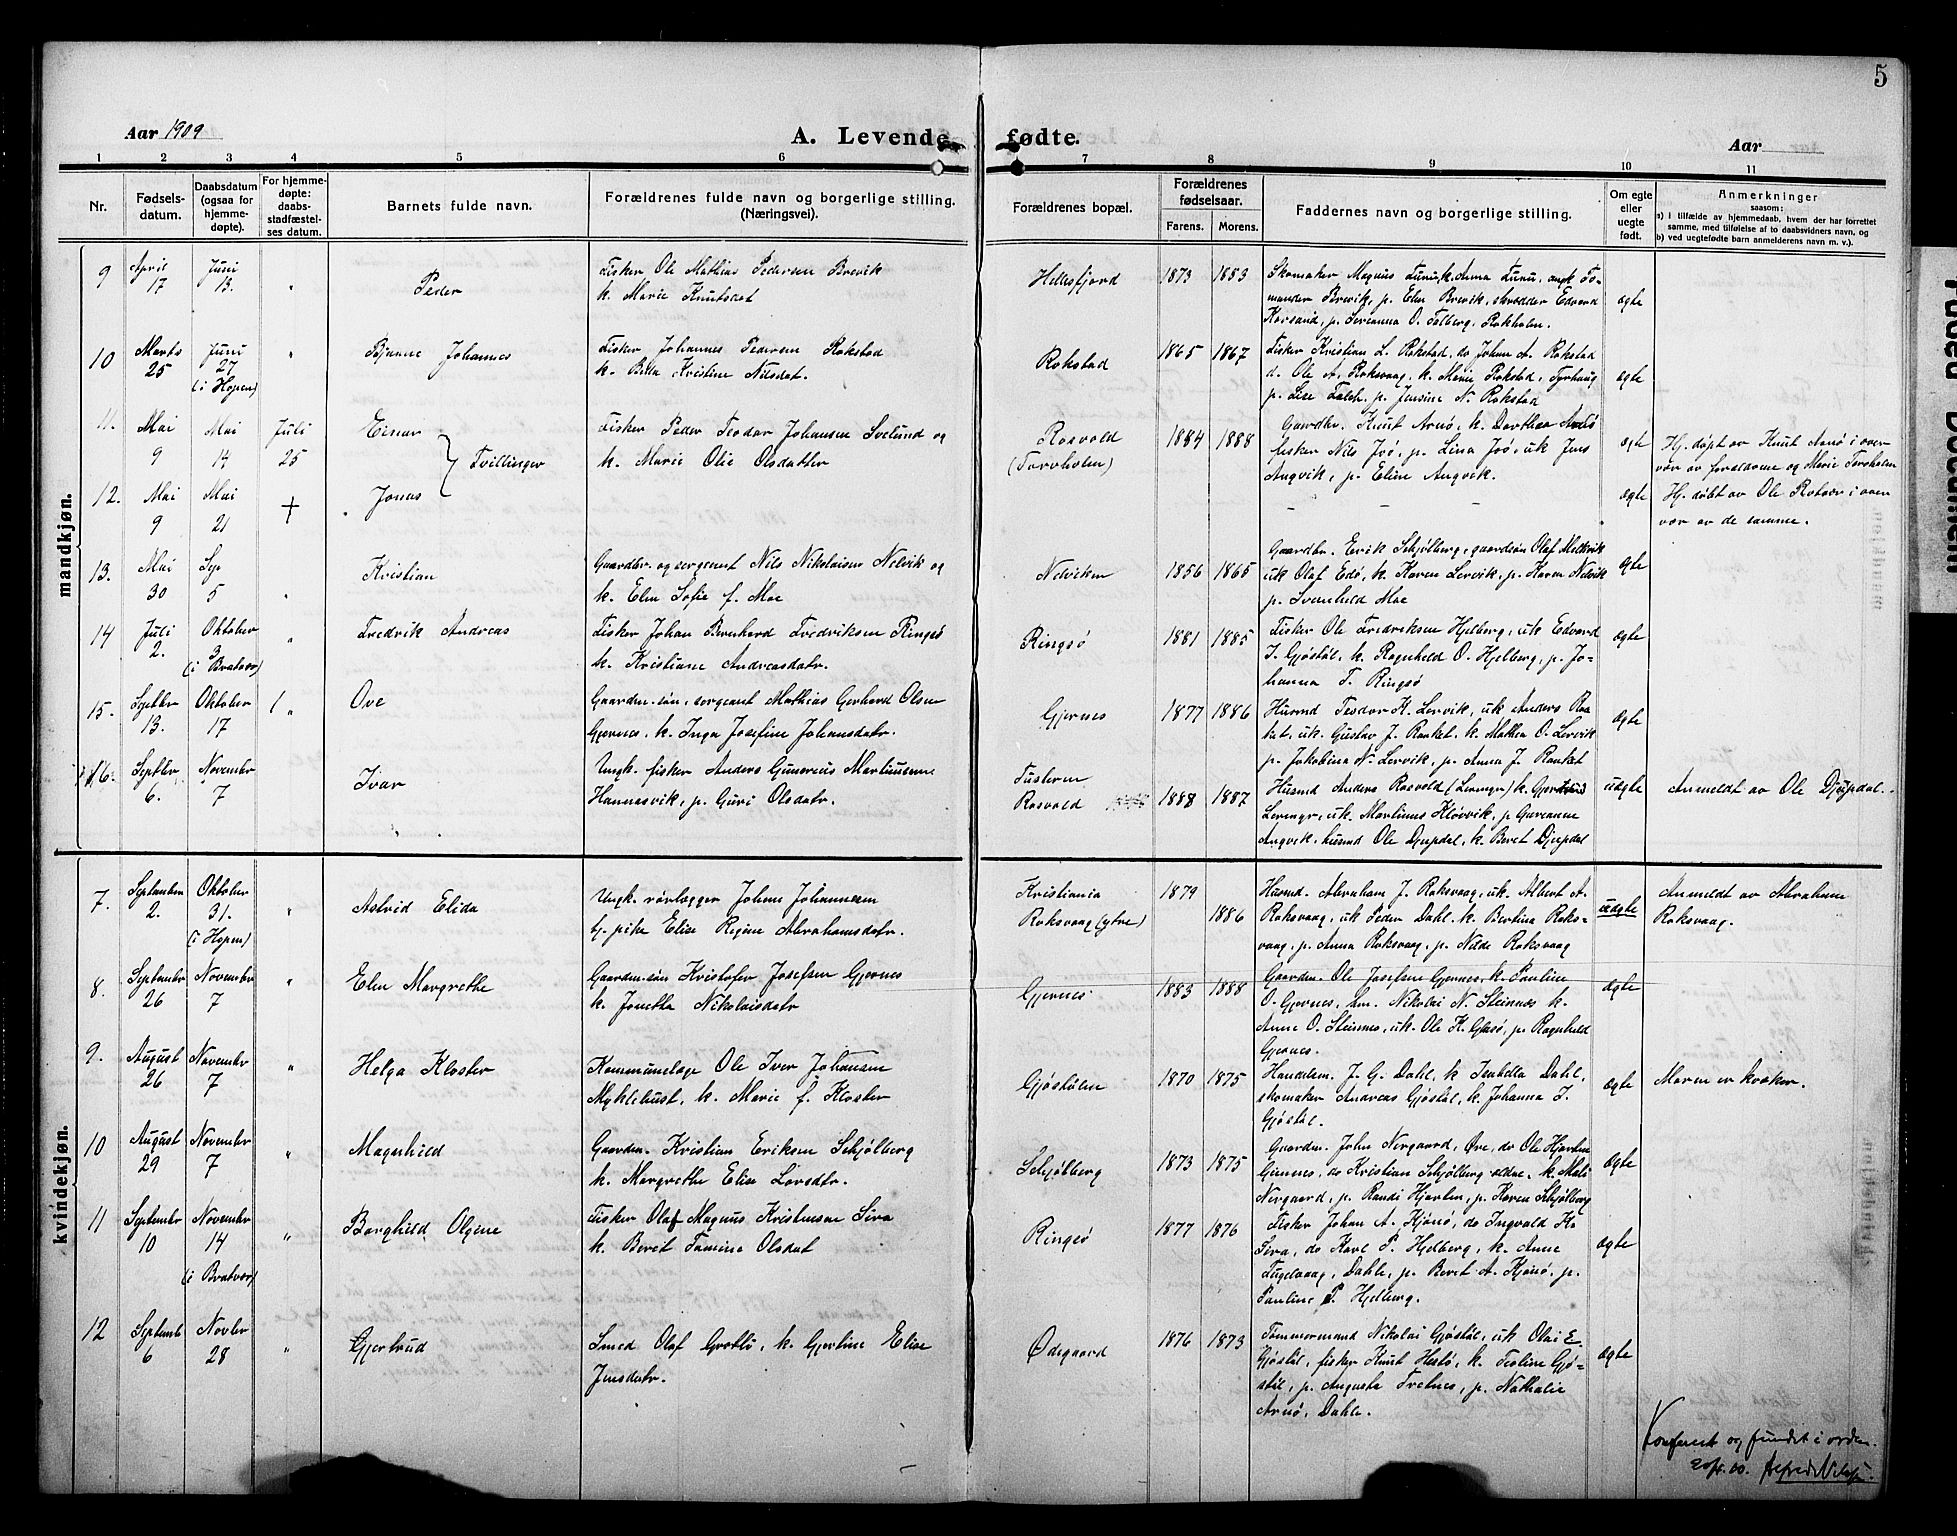 5
Aar 1909
A. Levende fødte.
Aar
1 2 3 4 5 6 7 8 9 10 11
Nr.
Fødsels-
datum.
Daabsdatum
(ogsaa for
hjemme-
døpte).
For hjemme-
døpte:
daabs-
stadfæstel-
ses datum.
Barnets fulde navn.
Forældrenes fulde navn og borgerlige stilling.
(Næringsvei).
Forældrenes bopæl.
Forældrenes
fødselsaar.
Farens. Morens.
Faddernes navn og borgerlige stilling.
Om egte
eller
uegte
født.
Anmerkninger
saasom:
a) i tilfælde av hjemmedaab, hvem der har forrettet
samme, med tilføielse af to daabsvidners navn, og
b) ved uegtefødte barn anmelderens navn m. v.).
mandkjøn.
9 April 17 Juni 13. " Peder
Fisker Ole Mathias Pedersen Brevik
k. Marie Knutsdat
Hellesfjord 1873 1883
Skomaker Magnus
Brevik, p. Elen Brevik, skrædder Edvard
Korsund, p. Serianna O. Talberg, Rokholm.
ægte
10 Marts 25 Juni 27 (i Hopen) " Bjarne Johannes
Fisker Johannes Pedersen Rokstad
k. Kristine Nilsdat.
Rokstad 1865 1867
Fisker Kristian L. Rokstad, do Johan A. Rokstad
d. Ole A. Roksvaag, k. Marie Rokstad, Tyrhaug
p. Lise p. Jensine N. Rokstad
ægte
11. Mai 9 Mai 14 Juli 25 Einar
Tvillinger
Fisker Peder Teodor Johansen Svelund og
k. Marie Olie Olsdatter
Rosvold (Torvholm) 1884 1888
Gaardbr. Knut Arnø, k. Dorthea Arnø
fisker Nils Jrø, p. Lina Jrø, uk Jens
Angvik, p. Eline Angvik.
ægte
Hj. døpt av Knut Arnø i over
vær av forældrene og Marie Torvholm
12. Mai 9 Mai 21 + Jonas
- -
ægte
Hj. døbt av Ole Rotvær i over
vær av de samme.
13. Mai 30 Sep 5 " Kristian
Gaardbr. og sergeant Nils Nikolaisen Nelvik og
k. Elen Sofie f. Moe
Nelviken 1856 1865
Gaardbr. Erik Schjølberg, gaardsøn Olaf
uk Olaf Edø, k. Karen Lervik, p. Karen Nelvik
p. Svanhild Moe
ægte
14 Juli 2. Oktober 3 (i Bratvær) " Fredrik Andreas
Fisker Johan Bernhard Fredriksen Ringsø
k. Kristiane Andreasdatr.
Ringsø 1881 1885
Fisker Ole Fredriksen Hjelberg, uk Edvard
J. Gjøstøl, k. Ragnhild O. Hjelberg, p. Jo-
hanna T. Ringsø
ægte
15. Septbr 13. Oktober 17 " Ove
Gaardm.søn, sergeant Mathias Gerhard Olsen
Gjernes, k. Inga Josefine Johansdatr.
Gjernes 1877 1886
Husmd Teodor K. Lervik, uk Anders Ra-
ket, uk. Gustav J. Raaket, k. Mathea O. Lervik
p. Jakobina N. Lervik, p. Anna J. Raaket
ægte
16. Septbr 6. November 7 Ivar
Ungk. fisker Anders Gunerius Martinsen
Hannesvik, p. Guri Olsdatr.
Tusteren
Rosvold 1888 1887
Husmd Anders Rosvold k. Gjertrud
uk. Martinus Kløvvik, p Gurianne
Angvik, husmd Ole Djupdal, k. Beret Djupdal
uægte
Anmeldt av Ole Djupdal.
kvindekjøn.
7. September 2. Oktober 31. (i Hopen) " Astrid Elida
Ungk. rørlægger Johan Johannesen
pike Elise Regine Abrahamsdatr.
Kristiania
Roksvaag (ytre) 1879 1886
Husmd. Abraham J. Roksvaag, uk. Albert A.
Roksvaag, uk Peder Dahl, k. Bertina Roks-
vaag, p. Anna Roksvaag, p. Nilde Roksvaag
uægte
Anmeldt av Abraham
Roksvaag.
8. September 26 November 7 " Elen Margrethe
Gaardm.søn Kristofer Josefsen Gjernes
k. Jonetta Nikolaisdatr
Gjernes 1883 1888
Gaardm. Ole Josefsen Gjernes, k. Pauline
O. Gjernes, Nikolai N. Steinnes k.
Anne O. Steinnes, uk. Ole K. p. Ragnhild
Gjernes.
ægte
9. August 26 November 7 " Helga Kloster
Kommunelæge Ole Iver Johansen
Myklebust, k. Marie f. Kloster
Gjøstølen 1870 1875
Handelsm. J. G. Dahl, k. Isabella Dahl,
skomaker Andreas Gjøstøl, k. Johanna I.
Gjøstøl.
ægte
Moren er kvæker.
10 August 29 November 7 " Magnhild
Gaardm. Kristian Eriksen Schjølberg
k. Margrethe Elise Larsdatr.
Schjølberg 1873 1875
Gaardm. John Nergaard, Øve, do Ole Hjorten
Gjernes, do Kristian Schjølberg k. Mali
Nergaard, p. Randi Hjorten, p. Karen Schjølberg
ægte
11 September 10 November 14 (i Bratvær) " Borghild Olgine
Fisker Olaf Magnus Kristensen Sira
k. Berit Tomine Olsdat
Ringsø 1877 1876
Fisker Johan A. Kjønø, do Ingvald
Sira, do Karl P. Hjelberg, k. Anne
Fugelvaag, Dahle, p. Beret A. Kjønø, p.
Pauline P. Hjelberg.
ægte
12 Septemb 6 Novbr 28 " Gjertrud
Smed Olaf Grøtli, k. Gjertine Elise
Jensdatr.
Ødegaard 1876 1873
Tømmermand Nikolai Gjøstøl, uk Olai E.
Gjøstøl, fisker Knut Hestø, k. Teoline Gjø-
støl, p. Augusta Tretnes, p. Nathalie
Arnø, Dahle.
ægte
Konferert og fundet i orden.
Alfred Nilsen.